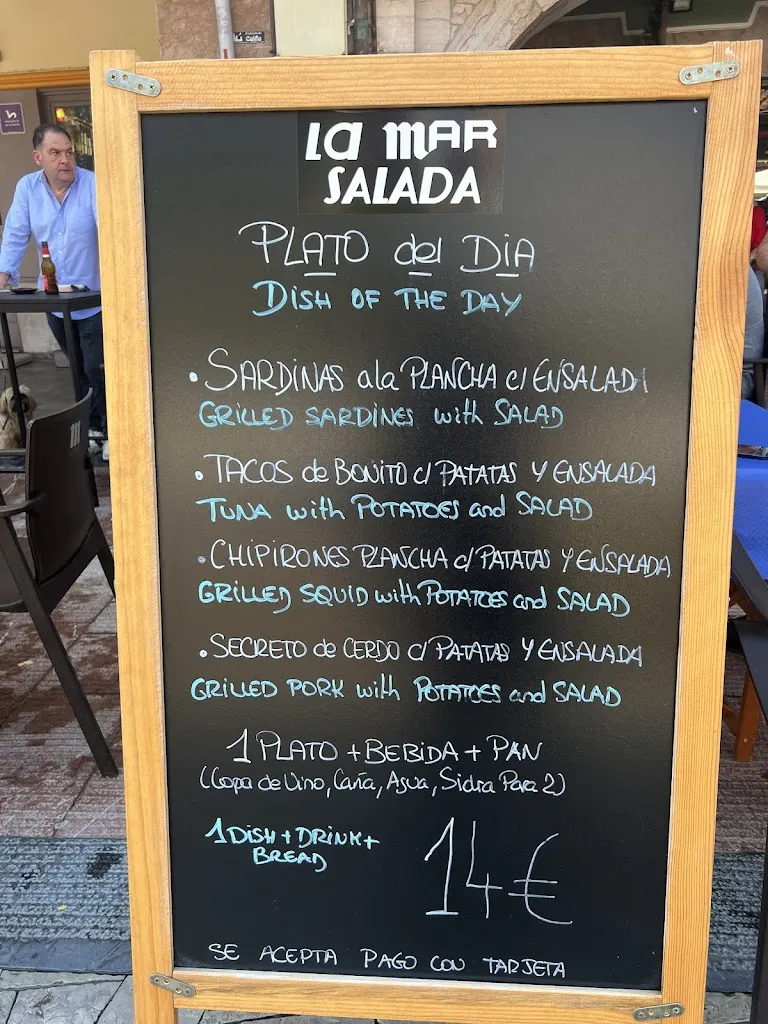 La MAR
SALADA
PLATO del DIA
DISH OF THE DAY
• SARDINAS a la PLANCHA c/ ENSALADA
GRILLED SARDINES with SALAD
• TACOS de BONITO c/ PATATAS Y ENSALADA
TUNA with POTATOES and SALAD
• CHIPIRONES PLANCHA c/ PATATAS Y ENSALADA
GRILLED SQUID with POTATOES and SALAD
• SECRETO de CERDO c/ PATATAS Y ENSALADA
GRILLED PORK with POTATOES and SALAD
1 PLATO + BEBIDA + PAN
(Copa de Vino, Caña, Agua, Sidra Para 2)
1 DISH + DRINK +
BREAD
14€
SE ACEPTA PAGO CON TARJETA